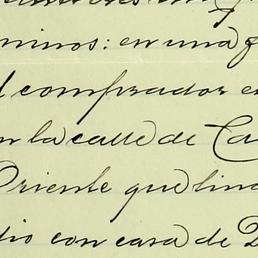 minos: en una
comprador e
en la calle de Ca
Oriente que lin
dio con casa de